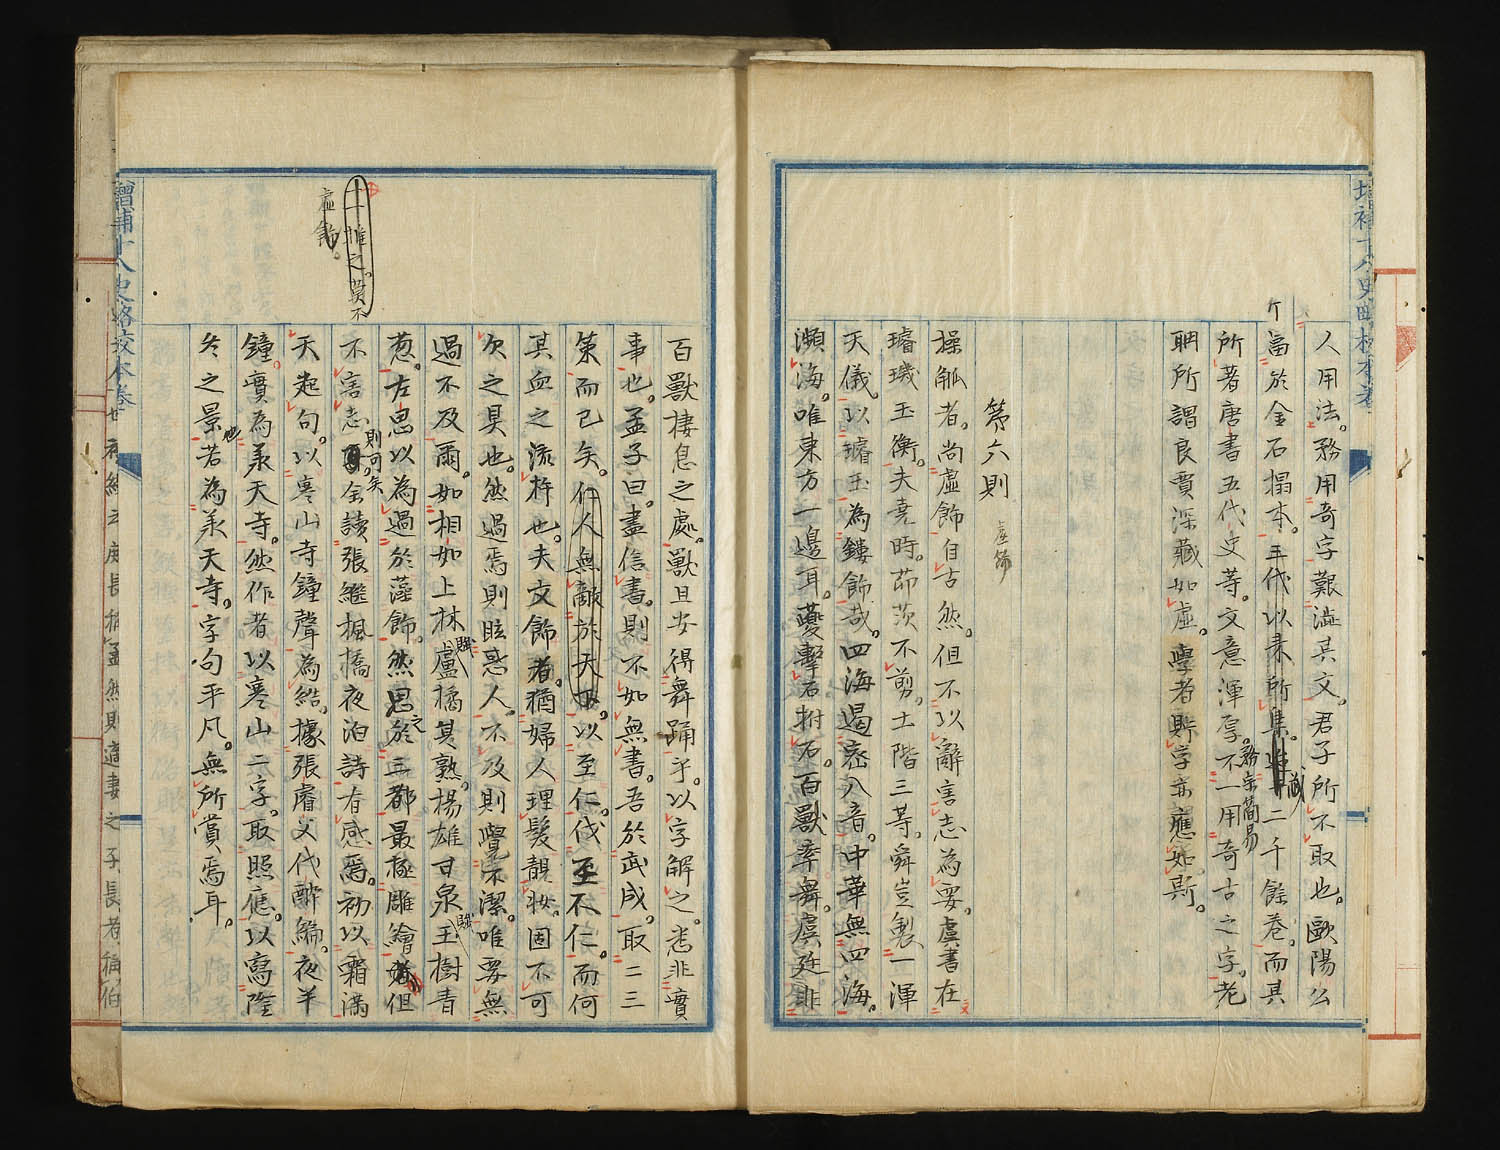 人用法。務用奇字艱澁其文。君子所不取也。歐陽公
富於金石搨本。三代以来所集。二千餘巻。而其
所著唐書五代史等。文意渾厚。務宗簡易不一用奇古之字。老
聃所謂良賈深藏如虛。學者貯字亦應如斯。
第六則
虛飾
操觚者。尚虛飾自古然。但不以辭害志為要。虞書在
璿璣玉衡。夫堯時。茆茨不剪。土階三等。舜豈製一渾
天儀。以璿玉為鏤飾哉。四海遏密八音。中華無四海。
瀕海。唯東方一邊耳。夔擊石拊石。百獸率舞。虞廷非
百獸棲息之處。獸且安得舞踊乎。以字解之。悉非實
事也。孟子曰。盡信書。則不如無書。吾於武成。取二三
策而已矣。仁人無敵於天下。以至仁。伐至不仁。而何
其血之流杵也。夫文飾者。猶婦人理髮靚妝。固不可
欠之具也。然過焉則眩惑人。不及則覺不潔。唯要無
過不及爾。如相如上林賦盧橘其熟。楊雄甘泉賦玉樹青
蔥。左思以為過於藻飾。然思之於三都最極雕繪。但
不害志則可矣。余讀張繼楓橋夜泊詩有感焉。初以霜滿
天起句。以寒山寺鐘聲為結。據張睿父代醉編。夜半
鐘實為承天寺。然作者以寒山二字。取照應。以寫隆
冬之景也若為承天寺。字句平凡。無所賞焉耳。
推之。莫不
虛飾。
増補十八史略校本巻
増補十八史略校本巻